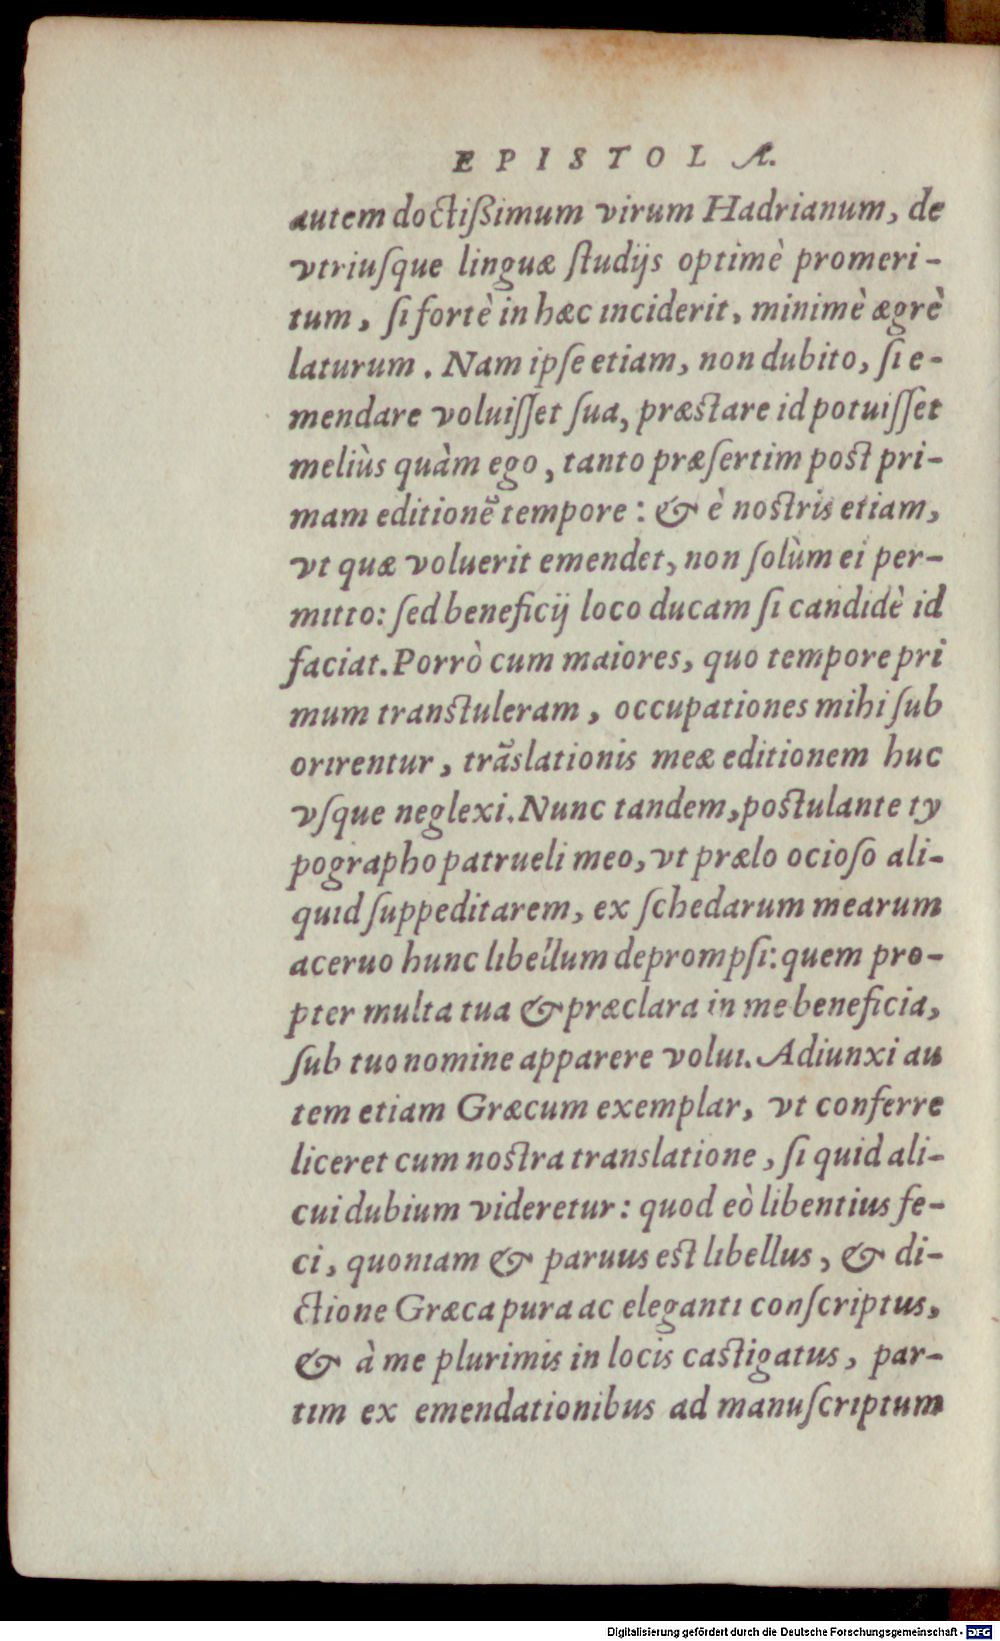 EPISTOLÆ.
autem doctißimum virum Hadrianum, de
vtriuſque linguæ ſtudijs optimè promeri-
tum, ſi fortè in hæc inciderit, minimè ægrè
laturum. Nam ipſe etiam, non dubito, ſi e-
mendare voluiſſet ſua, præſtare id potuiſſet
meliùs quàm ego, tanto præſertim poſt pri-
mam editionẽ tempore: & è noſtris etiam,
vt quæ voluerit emendet, non ſolùm ei per-
mitto: ſed beneficij loco ducam ſi candidè id
faciat. Porrò cum maiores, quo tempore pri
mum tranſtuleram, occupationes mihi ſub
orirentur, trãslationis meæ editionem huc
vſque neglexi. Nunc tandem, poſtulante ty
pographo patrueli meo, vt prælo ocioſo ali-
quid ſuppeditarem, ex ſchedarum mearum
aceruo hunc libellum deprompſi: quem pro-
pter multa tua & præclara in me beneficia,
ſub tuo nomine apparere volui. Adiunxi au
tem etiam Græcum exemplar, vt conferre
liceret cum noſtra translatione, ſi quid ali-
cui dubium videretur: quod eò libentius fe-
ci, quoniam & paruus eſt libellus, & di-
ctione Græca pura ac eleganti conſcriptus,
& à me plurimis in locis caſtigatus, par-
tim ex emendationibus ad manuſcriptum
Digitalisierung gefördert durch die Deutsche Forschungsgemeinschaft - DFG